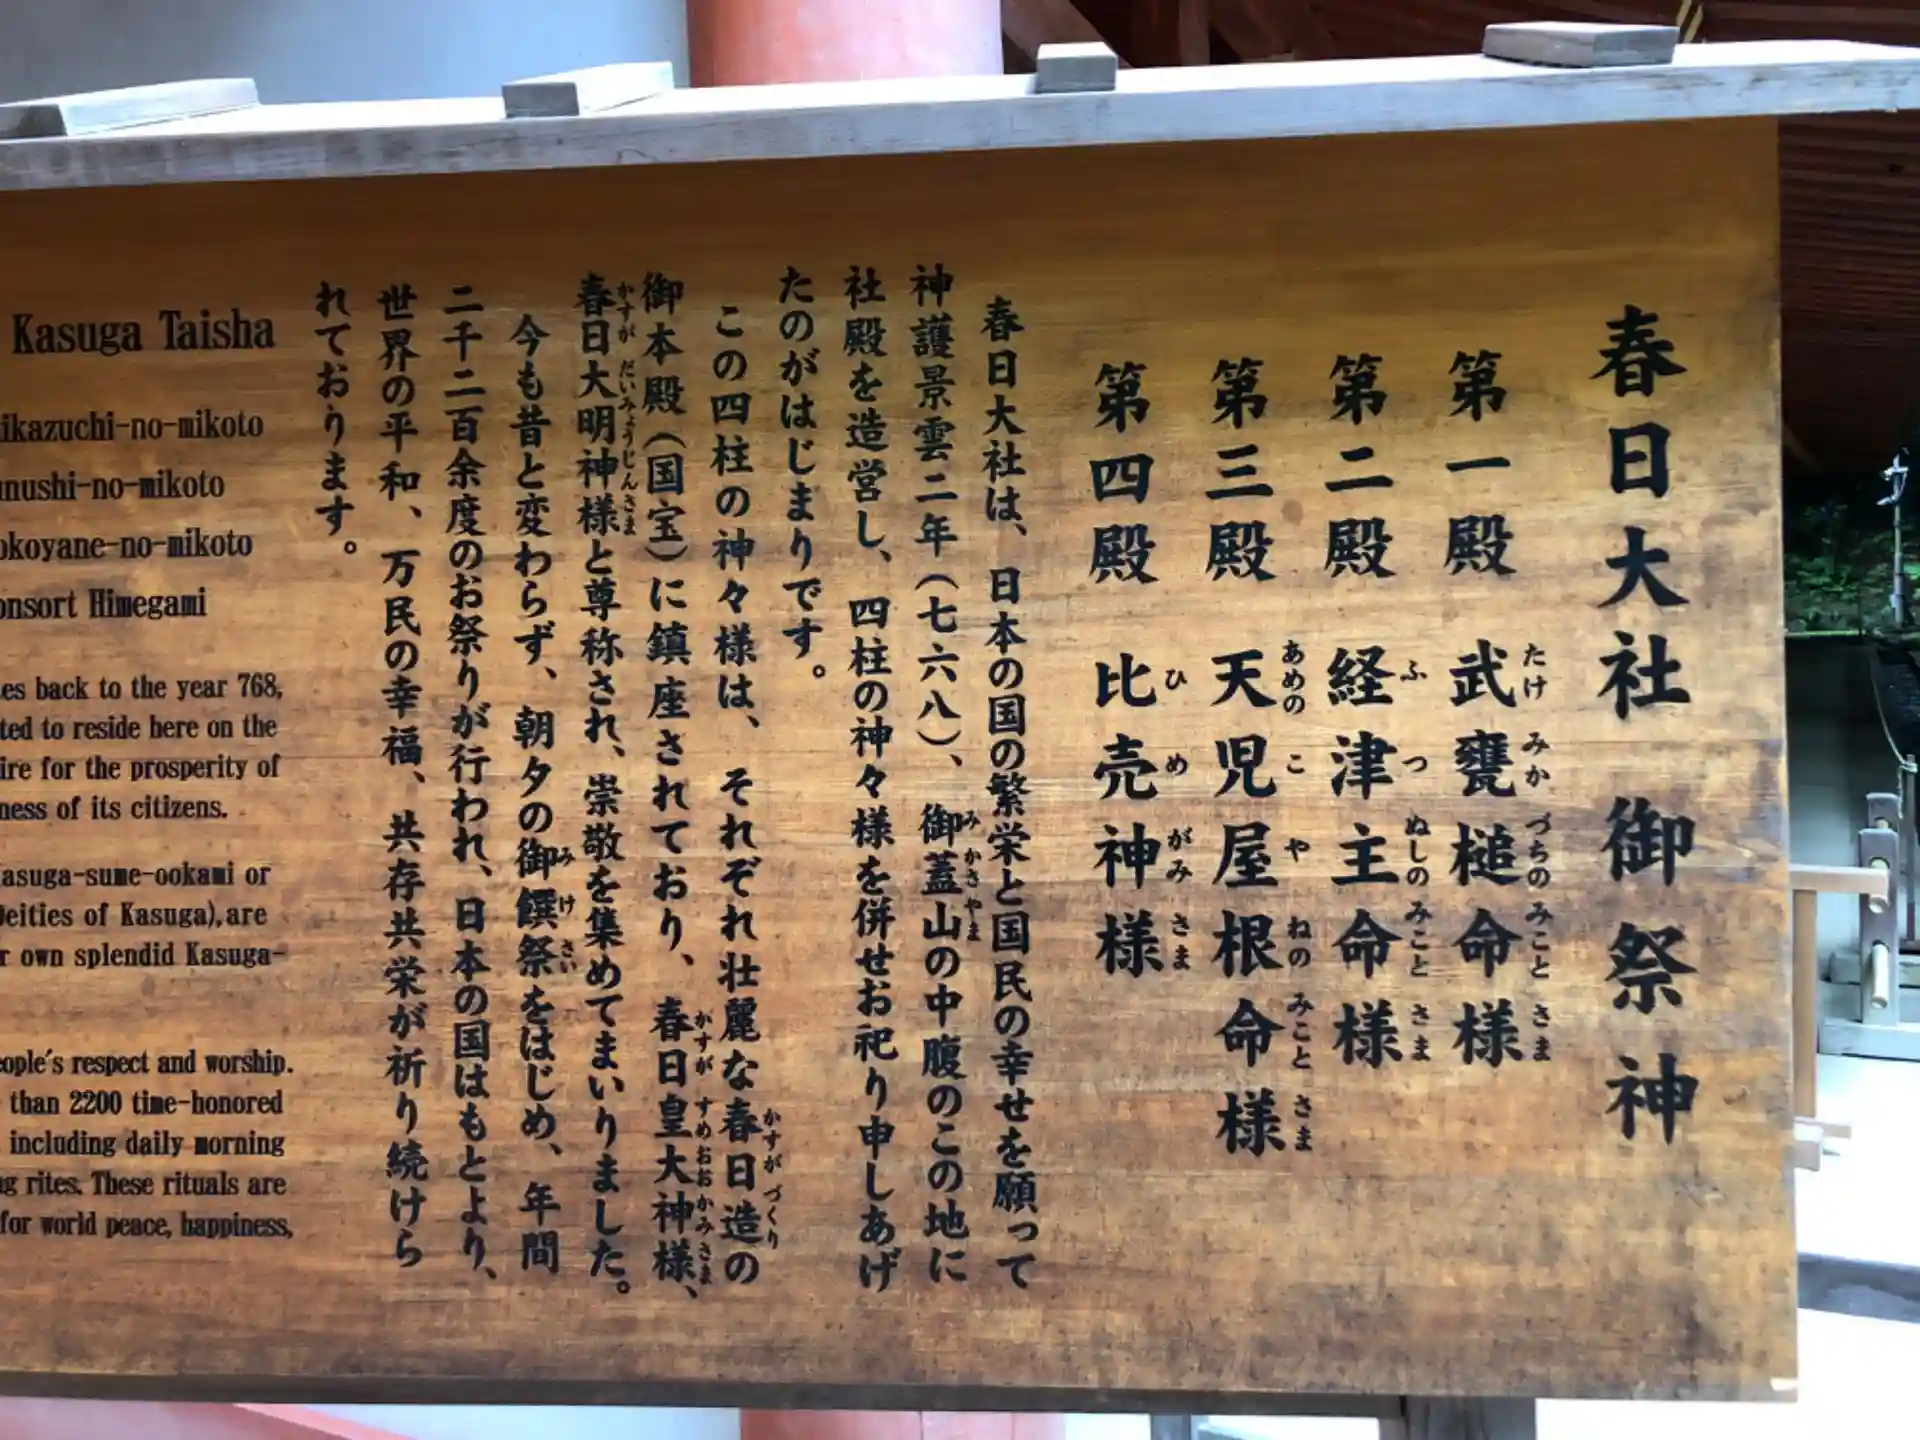 春日大社 御祭神
第一殿 武甕槌命様
たけ みか づちの みこと さま
第二殿 経津主命様
ふ つ ぬしの みこと さま
第三殿 天児屋根命様
あめの こ や ねの みこと さま
第四殿 比売神様
ひ め がみ さま
春日大社は、日本の国の繁栄と国民の幸せを願って
神護景雲二年(七六八)、御蓋山の中腹のこの地に
みかさやま
社殿を造営し、四柱の神々様を併せお祀り申しあげ
たのがはじまりです。
この四柱の神々様は、それぞれ壮麗な春日造の
かすがづくり
御本殿(国宝)に鎮座されており、春日皇大神様、
かすが すめおおかみさま
春日大明神様と尊称され、崇敬を集めてまいりました。
かすが だいみょうじんさま
今も昔と変わらず、朝夕の御饌祭をはじめ、年間
み け さい
二千二百余度のお祭りが行われ、日本の国はもとより、
世界の平和、万民の幸福、共存共栄が祈り続けら
れております。
Kasuga Taisha
ikazuchi-no-mikoto
unushi-no-mikoto
okoyane-no-mikoto
onsort Himegami
es back to the year 768,
ted to reside here on the
ire for the prosperity of
ness of its citizens.
asuga-sume-ookami or
Deities of Kasuga),are
r own splendid Kasuga-
eople's respect and worship.
than 2200 time-honored
including daily morning
ng rites. These rituals are
for world peace, happiness,